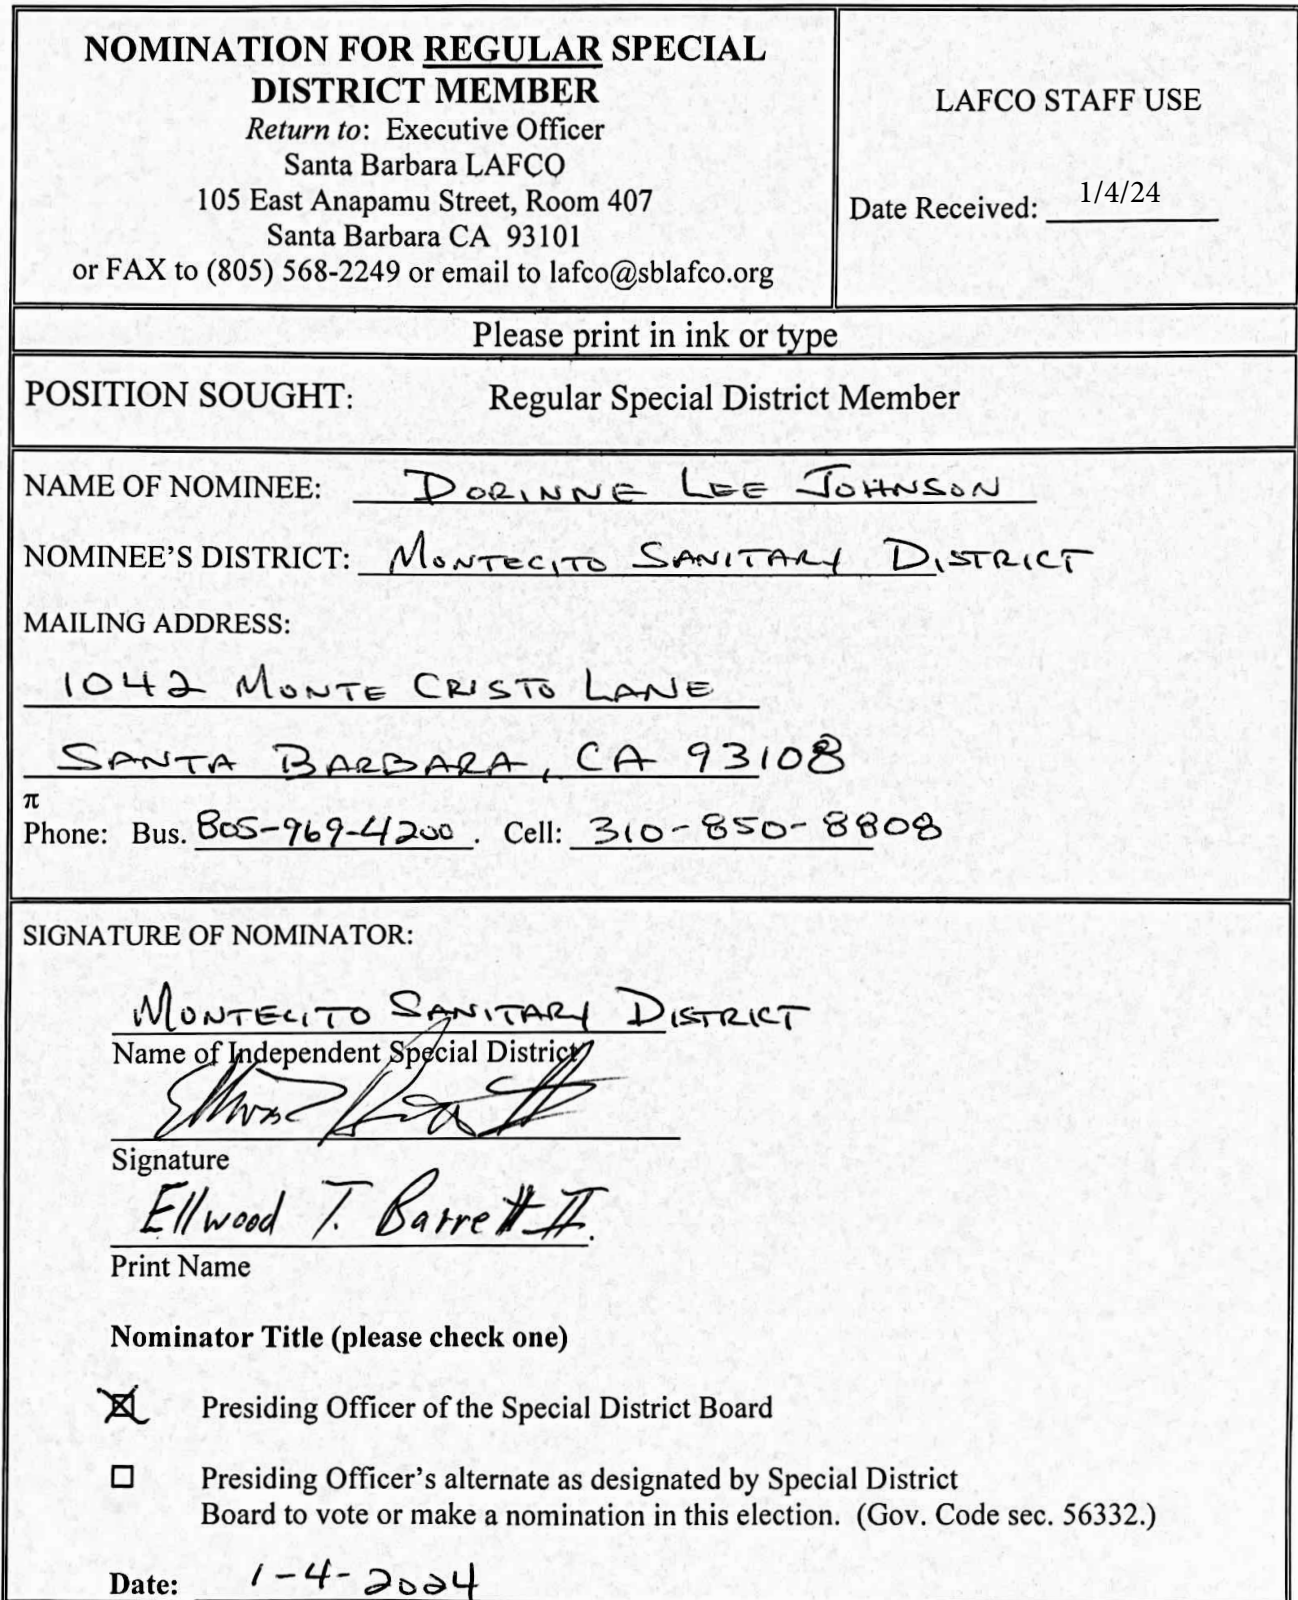 NOMINATION FOR REGULAR SPECIAL
DISTRICT MEMBER
Return to: Executive Officer
Santa Barbara LAFCO
105 East Anapamu Street, Room 407
Santa Barbara CA 93101
or FAX to (805) 568-2249 or email to lafco@sblafco.org
LAFCO STAFF USE
Date Received: 1/4/24
Please print in ink or type
POSITION SOUGHT: Regular Special District Member
NAME OF NOMINEE: DORINNE LEE JOHNSON
NOMINEE'S DISTRICT: MONTECITO SANITARY DISTRICT
MAILING ADDRESS:
1042 MONTE CRISTO LANE
SANTA BARBARA, CA 93108
π
Phone: Bus. 805-969-4200. Cell: 310-850-8808
SIGNATURE OF NOMINATOR:
MONTECITO SANITARY DISTRICT
Name of Independent Special District
Signature
Ellwood T. Barrett II.
Print Name
Nominator Title (please check one)
☒ Presiding Officer of the Special District Board
☐ Presiding Officer's alternate as designated by Special District
Board to vote or make a nomination in this election. (Gov. Code sec. 56332.)
Date: 1-4-2024